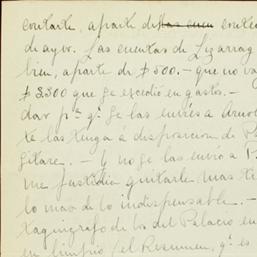 contarte, aparte de las cuen contes
de ayer. Las cuentas de Lizarrag
bien, aparte de $500.- que no va
$3.300 que se excedió en gastos.-
dar pª qª se las envíes a
te las tenga á disposicion de P
gitare. - Y no se las envío a P
me fastidia quitarle mas ti
lo mas de lo indispensable.-
taquigrafo de los del Palacio en
en limpio (el Resumen, qª es